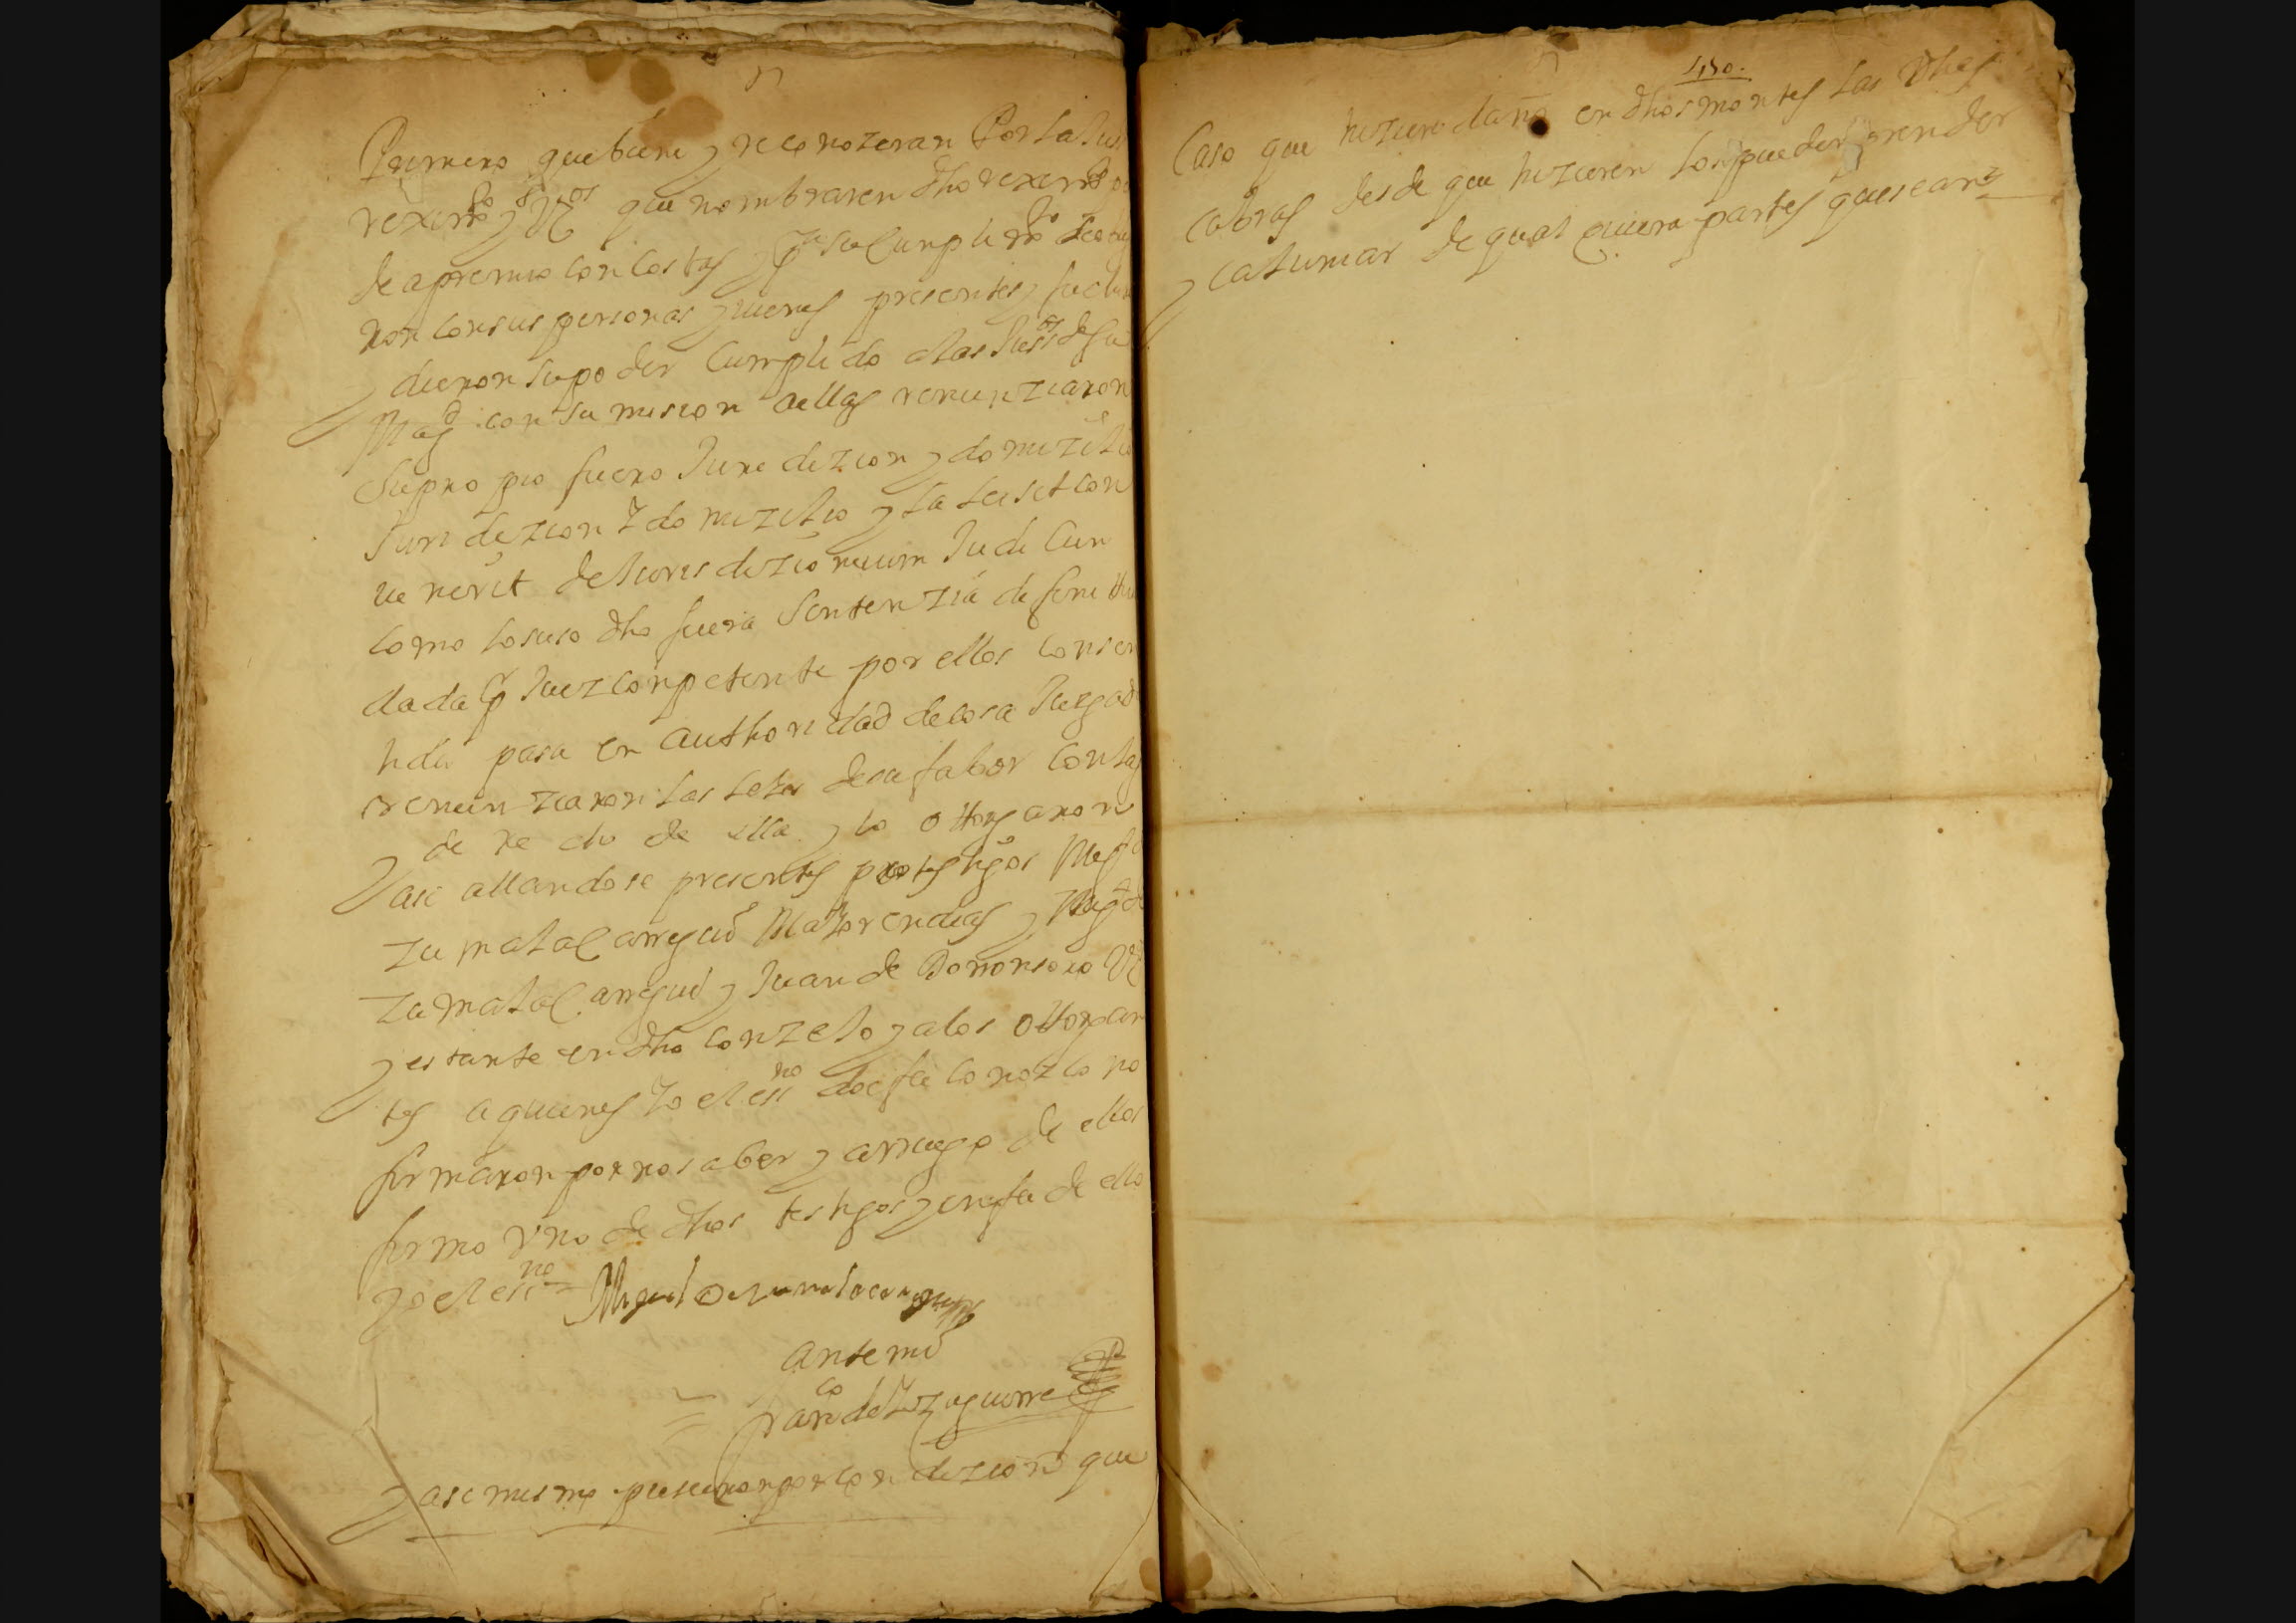 Primero que bieren y reconozeran Por la Jus
reximto y Vos que nombraren dho reximto
de apremio con costas y pa su Cumplimto
ron con sus personas y vienes presentes y futur
y dieron su poder Cumplido a las Jusas de su
Magd con sumision a ellas renunziaron
Supropio fuero Juridizion y domizilio
Juridizion y domizilio y la lei sit con
venerit de Jurisdizionium Judicun
como lo suso dho fuera Sentenzia definitiu
dada por Juez conpetente por ellos consen
tida pasa en authoridad de cosa Juzgad
renunziaron las leies de su fabor con la
derecho de ella y lo ottorgaron
Y asi allandose presentes por testigos
zumalac arregui Maior en dias y
zumalac arregui y Juan de
y estante en dho conzejo y a los ottorgan
tes a quienes Yo el essno doi fee conozco no
firmaron por no saber y a rruego de ellos
firmo Vno de dhos testigos y en fee de ello
yo el essno = Miguel de zumalacarregui
Ante mi
= Franco de Yzaguirre
Y asi mismo pusieron por condizion que
450.
Caso que hizieren daño en dhos montes las dhas
cabras desde que hizieren los pueden prender
y calumiar de qual quiera partes que sean =